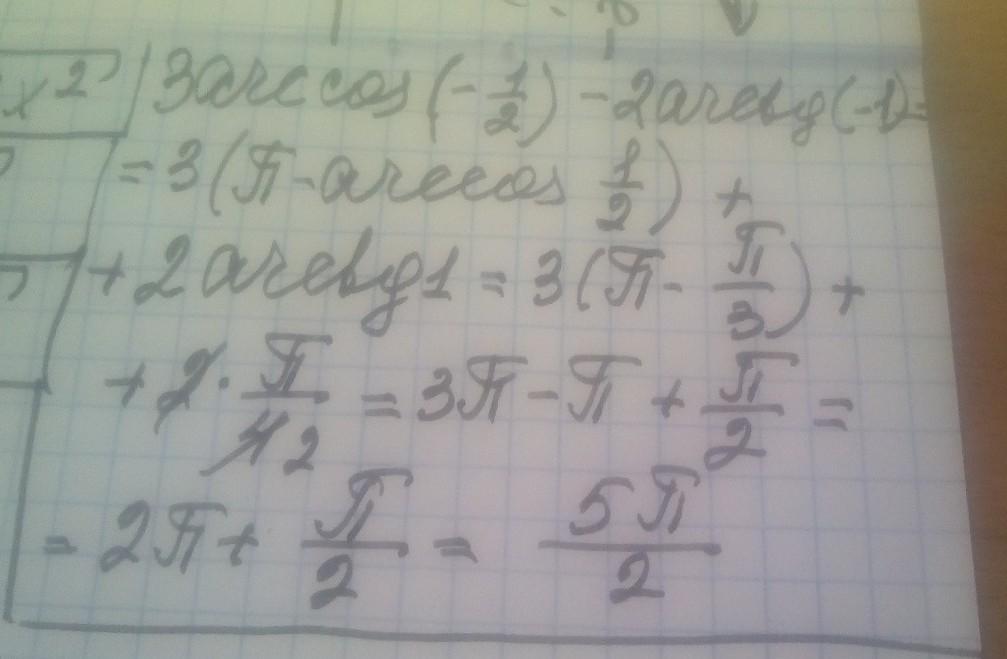 x² 3arccos(-1/2) - 2arctg(-1)=
= 3(π - arccos 1/2) +
+ 2arctg1 = 3(π - π/3) +
+ 2 · π/4 2 = 3π - π + π/2 =
= 2π + π/2 = 5π/2